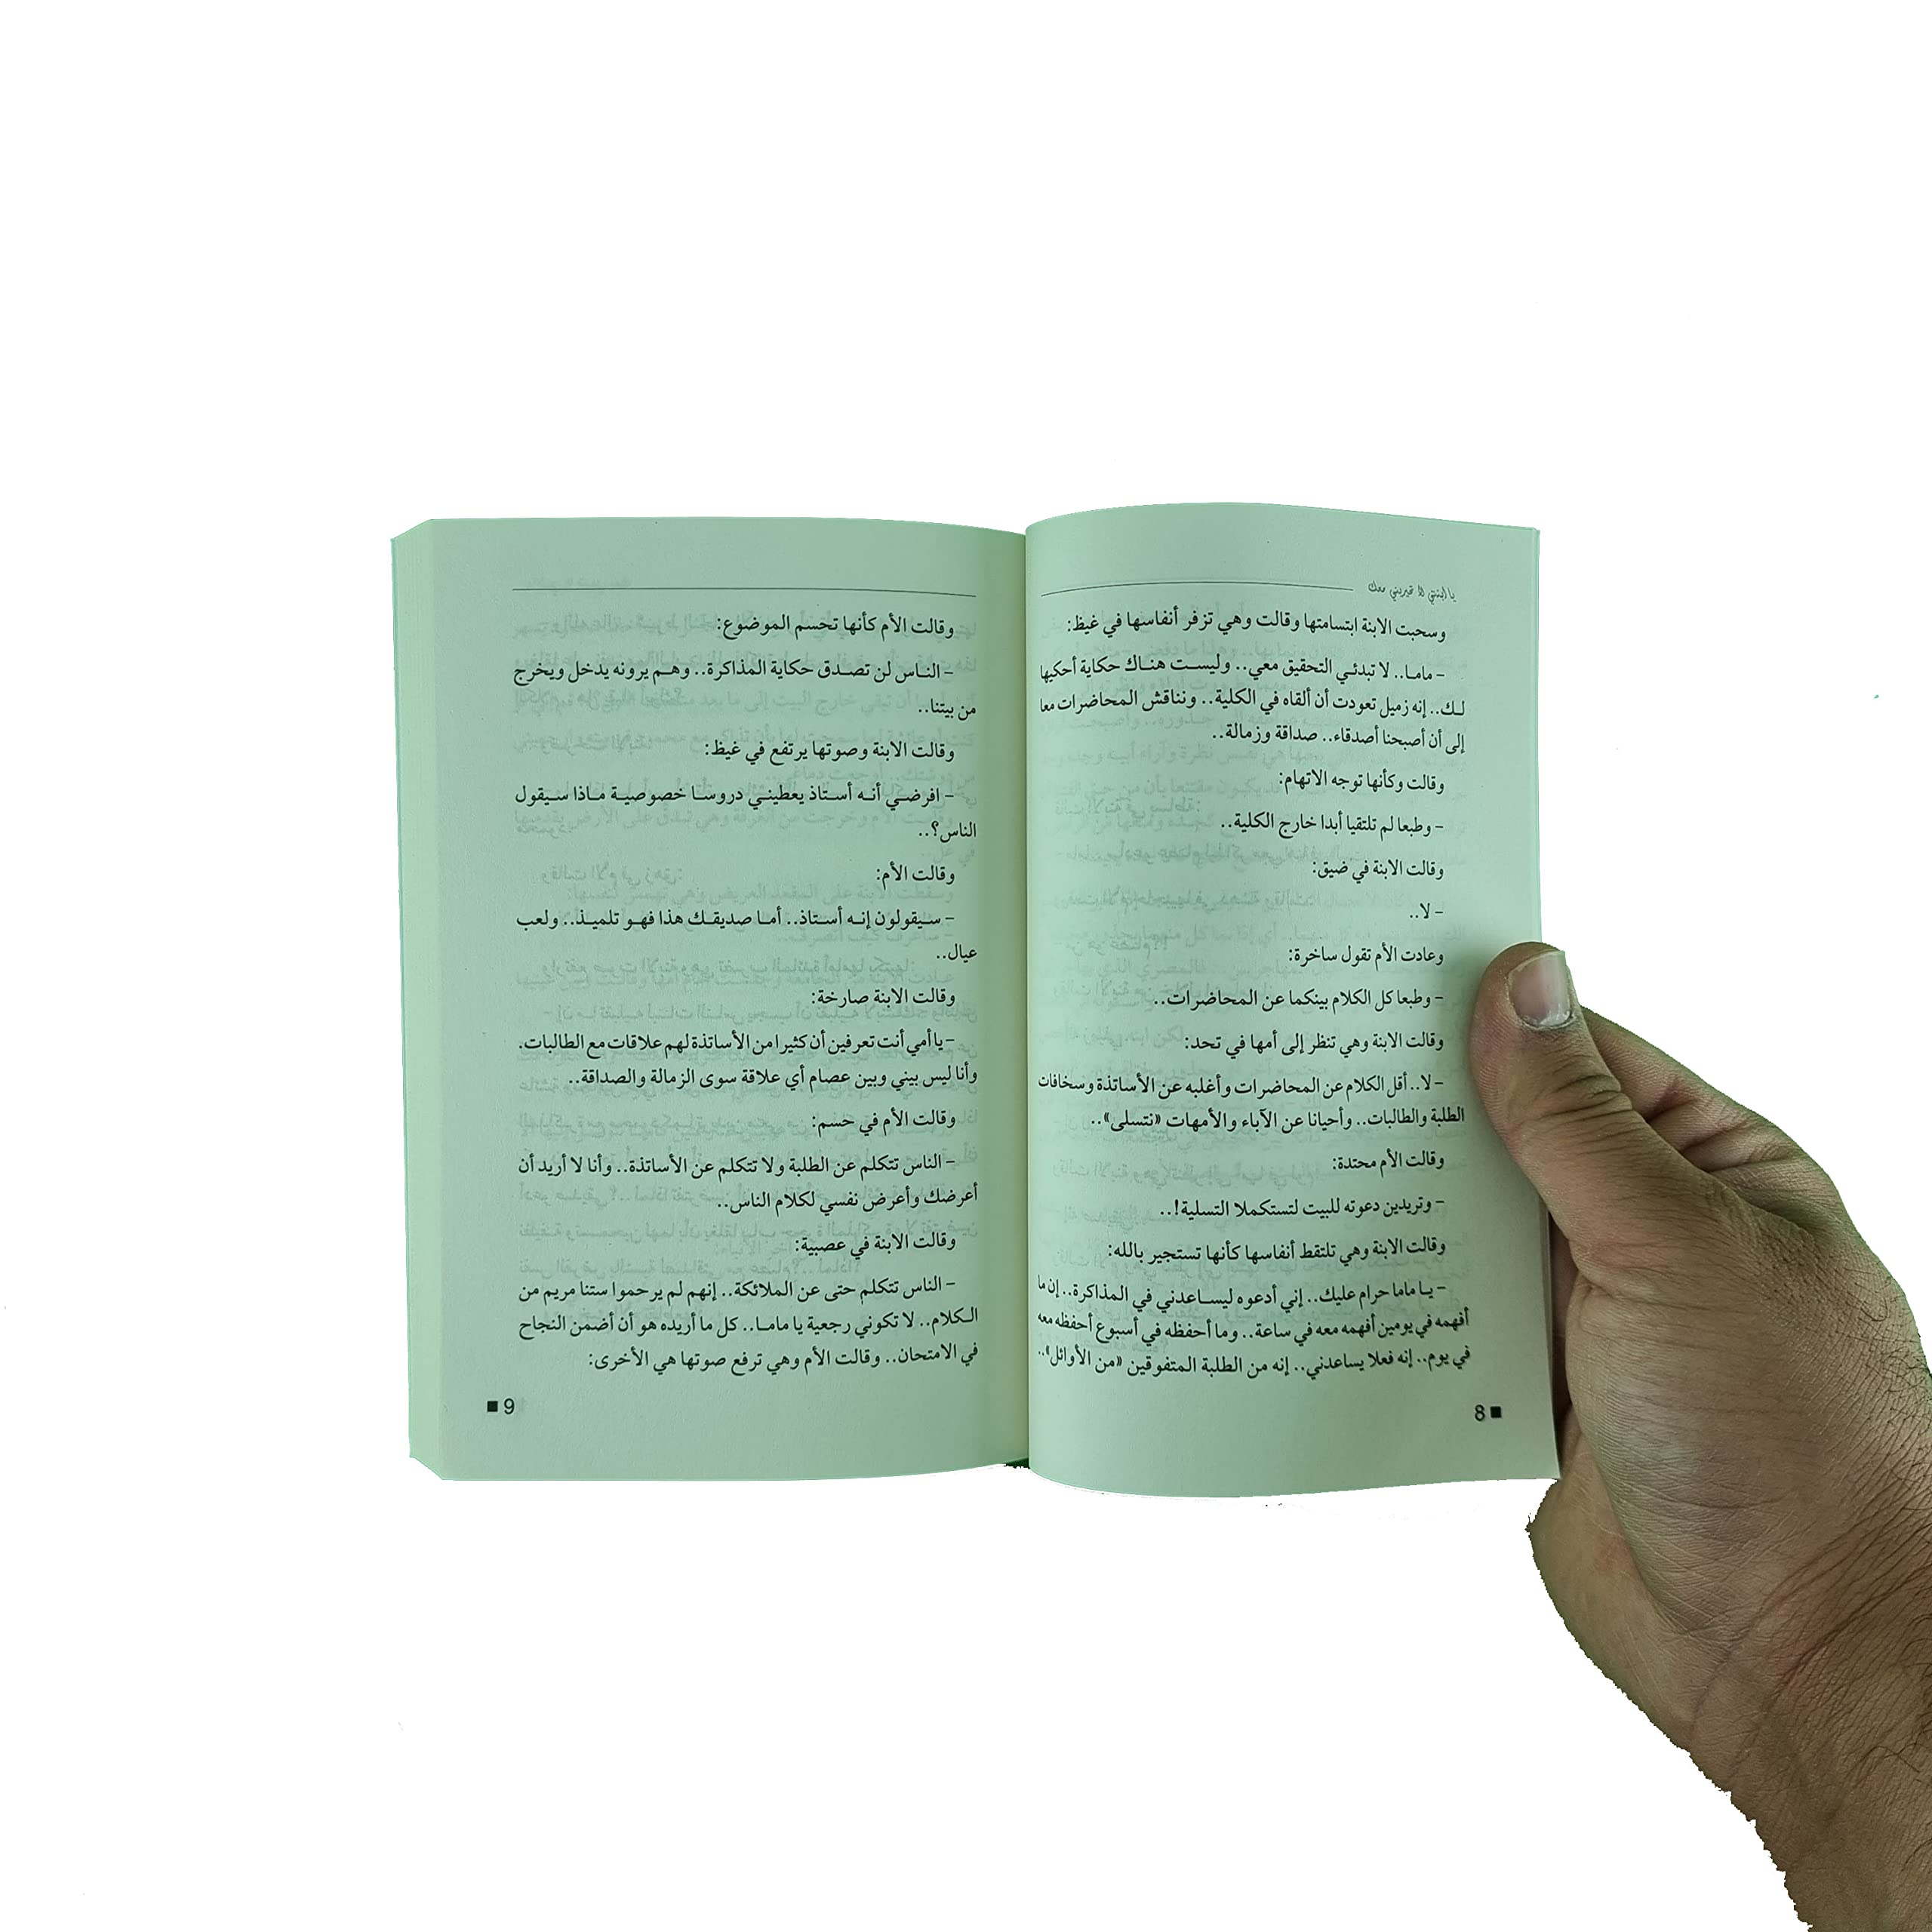 يا ابنتي لا تحيريني معك
وسحبت الابنة ابتسامتها وقالت وهي تزفر أنفاسها في غيظ:
– ماما.. لا تبدئي التحقيق معي.. وليست هناك حكاية أحكيها
لك.. إنه زميل تعودت أن ألقاه في الكلية.. ونناقش المحاضرات معا
إلى أن أصبحنا أصدقاء.. صداقة وزمالة..
وقالت وكأنها توجه الاتهام:
– وطبعا لم تلتقيا أبدا خارج الكلية..
وقالت الابنة في ضيق:
– لا..
وعادت الأم تقول ساخرة:
– وطبعا كل الكلام بينكما عن المحاضرات..
وقالت الابنة وهي تنظر إلى أمها في تحد:
– لا.. أقل الكلام عن المحاضرات وأغلبه عن الأساتذة وسخافات
الطلبة والطالبات.. وأحيانا عن الآباء والأمهات «نتسلى»..
وقالت الأم محتدة:
– وتريدين دعوته للبيت لتستكملا التسلية!..
وقالت الابنة وهي تلتقط أنفاسها كأنها تستجير بالله:
– يا ماما حرام عليك.. إني أدعوه ليساعدني في المذاكرة.. إن ما
أفهمه في يومين أفهمه معه في ساعة.. وما أحفظه في أسبوع أحفظه معه
في يوم.. إنه فعلا يساعدني.. إنه من الطلبة المتفوقين «من الأوائل»..
8
وقالت الأم كأنها تحسم الموضوع:
– الناس لن تصدق حكاية المذاكرة.. وهم يرونه يدخل ويخرج
من بيتنا..
وقالت الابنة وصوتها يرتفع في غيظ:
– افرضي أنه أستاذ يعطيني دروسا خصوصية ماذا سيقول
الناس؟..
وقالت الأم:
– سيقولون إنه أستاذ.. أما صديقك هذا فهو تلميذ.. ولعب
عيال..
وقالت الابنة صارخة:
– يا أمي أنت تعرفين أن كثيرا من الأساتذة لهم علاقات مع الطالبات.
وأنا ليس بيني وبين عصام أي علاقة سوى الزمالة والصداقة..
وقالت الأم في حسم:
– الناس تتكلم عن الطلبة ولا تتكلم عن الأساتذة.. وأنا لا أريد أن
أعرضك وأعرض نفسي لكلام الناس..
وقالت الابنة في عصبية:
– الناس تتكلم حتى عن الملائكة.. إنهم لم يرحموا ستنا مريم من
الكلام.. لا تكوني رجعية يا ماما.. كل ما أريده هو أن أضمن النجاح
في الامتحان.. وقالت الأم وهي ترفع صوتها هي الأخرى:
9